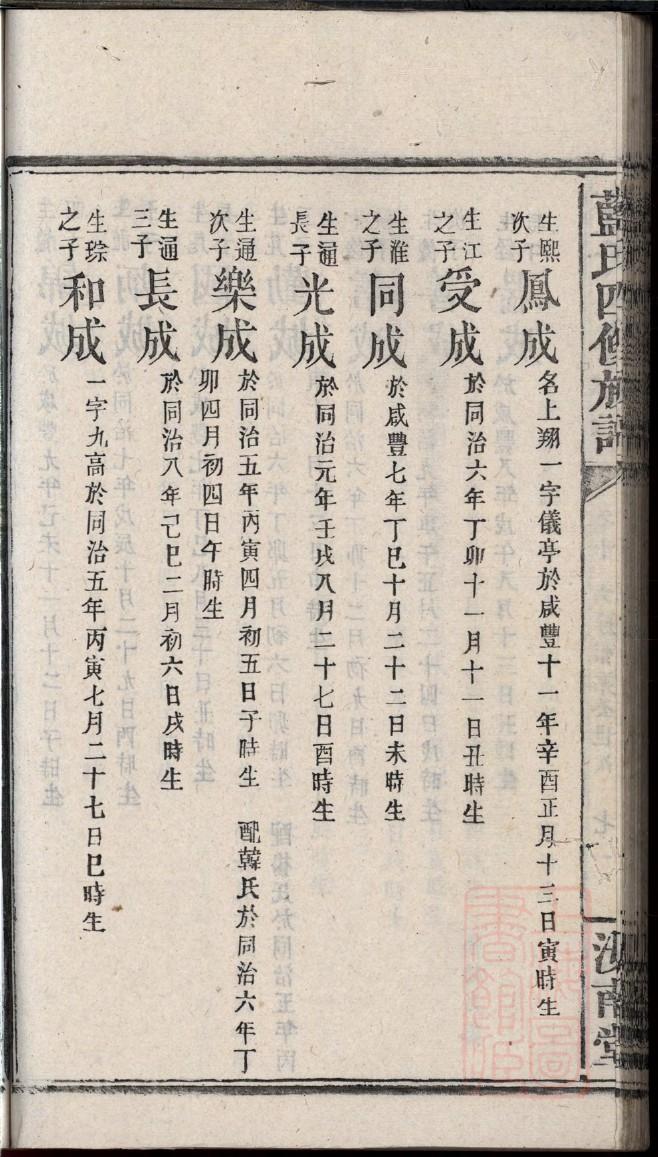 藍氏四修族譜
汝南堂
生熙次子 鳳成 名上翔一字儀亭於咸豐十一年辛酉正月十三日寅時生
生江之子 受成 於同治六年丁卯十一月十一日丑時生
生淮之子 同成 於咸豐七年丁巳十月二十二日未時生
生通長子 光成 於同治元年壬戌八月二十七日酉時生
生通次子 樂成 於同治五年丙寅四月初五日子時生 配韓氏於同治六年丁
卯四月初四日午時生
生通三子 長成 於同治八年己巳二月初六日戌時生
生琮之子 和成 一字九高於同治五年丙寅七月二十七日巳時生